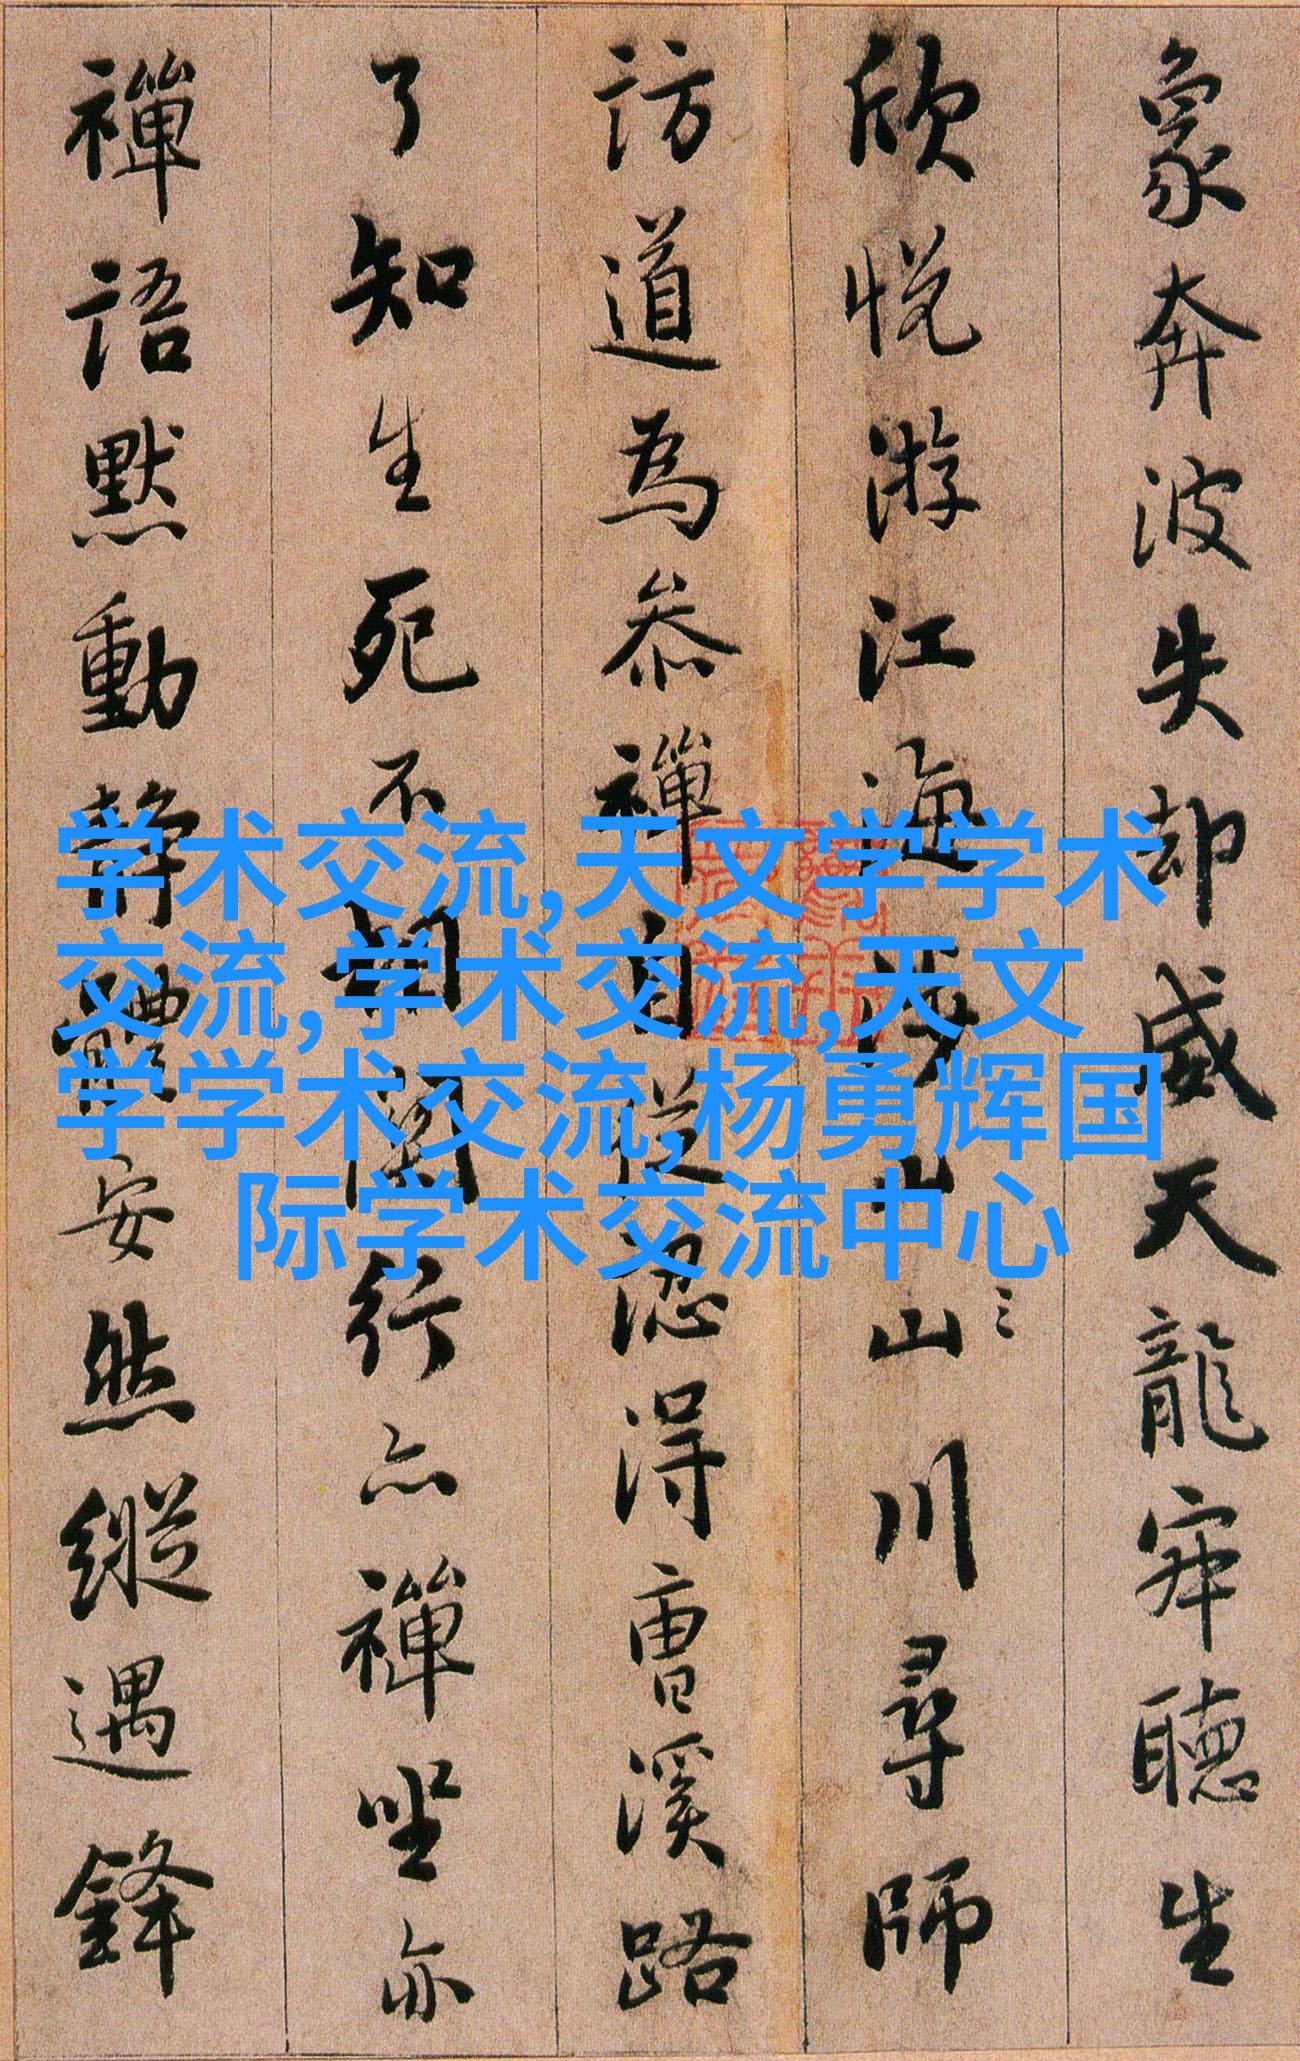 象奔波失却威天龍寂聽生
欣悦游江海涉山山川尋師
訪道為叅禪自從認得曹溪路
了知生死不相関行亦禪坐亦
禪語默動静體安然縱遇鋒
学术交流,天文学学术
交流,学术交流,天文
学学术交流,杨勇辉国
际学术交流中心